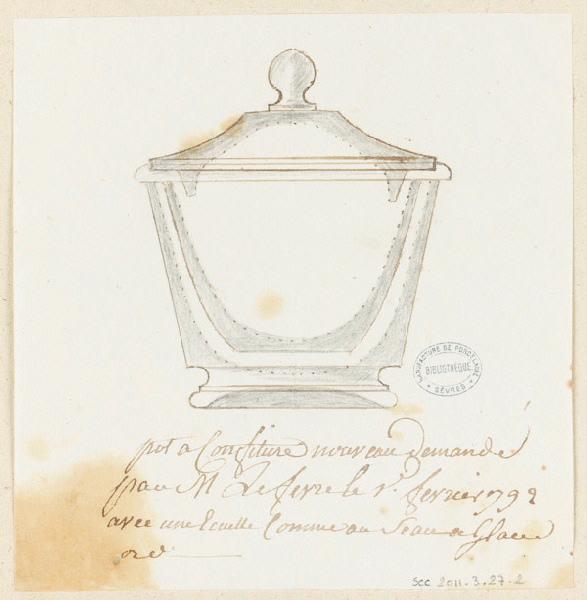 MANUFACTURE DE PORCELAINE
BIBLIOTHEQUE
SEVRES
pot a Confiture nouveau Demandé
par M Lefevre le 1r. fevrier 1792
avec une Cuelle Comme au Seau a Glace
SCC 2011.3.27.2